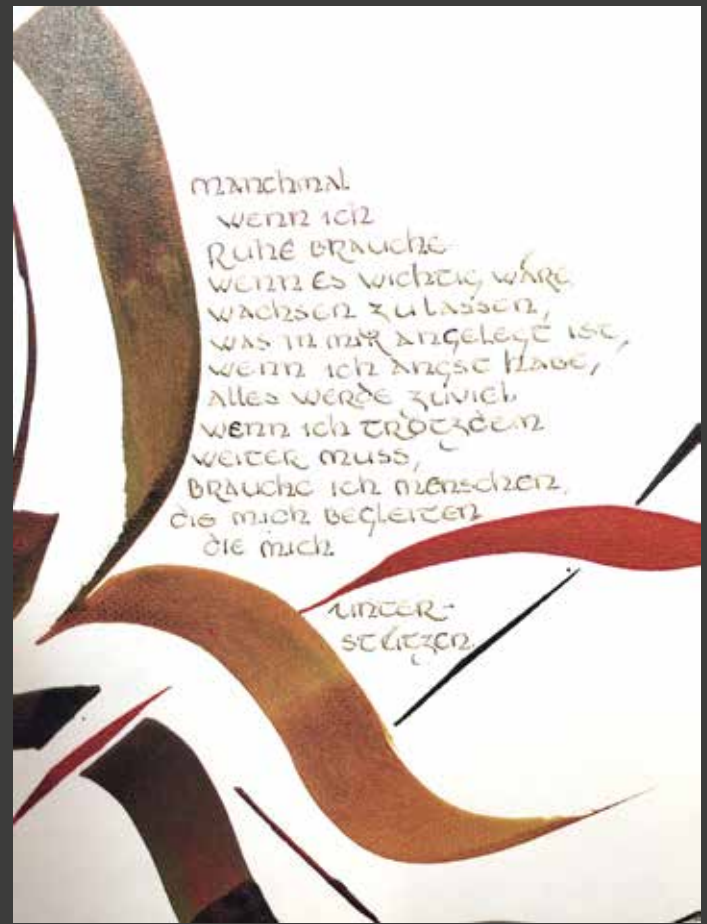 manchmal
wenn ich
Ruhe brauche
wenn es wichtig wäre
wachsen zu lassen,
was in mir angelegt ist,
wenn ich angst habe,
alles werde zuviel
wenn ich trotzdem
weiter muss,
brauche ich menschen,
die mich begleiten
die mich
unter-
stützen.